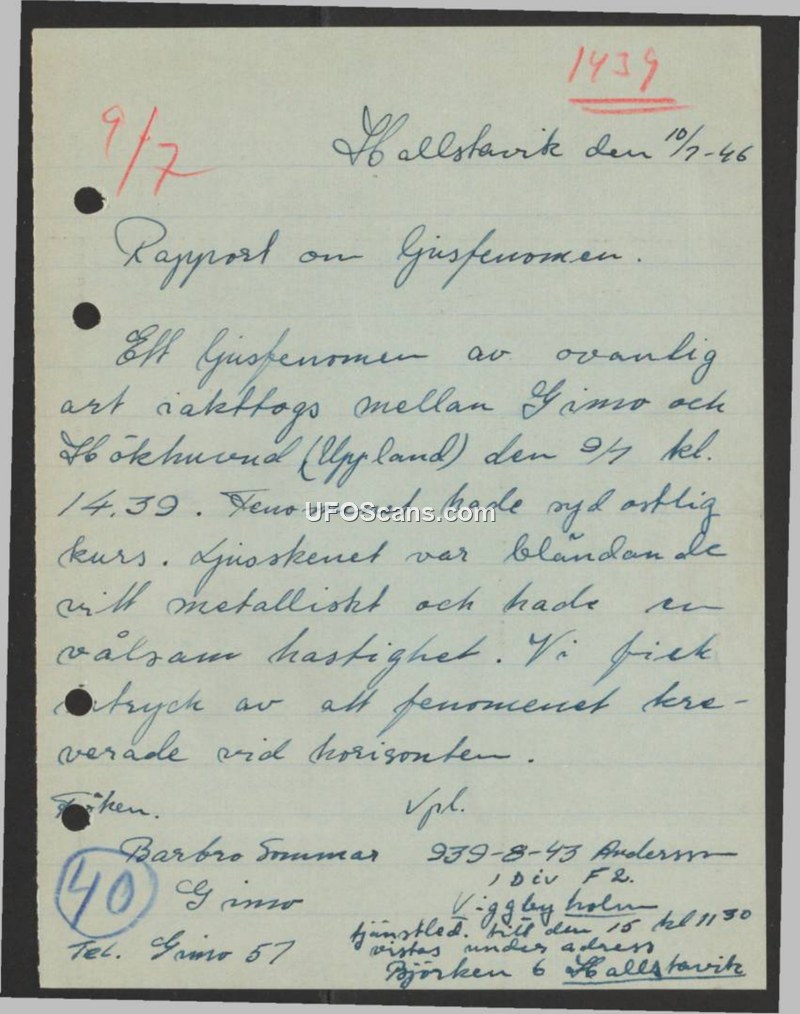 1439
9/7
Hallstavik den 10/7-46
Rapport om ljusfenomen.
Ett ljusfenomen av ovanlig
art iakttogs mellan Gimo och
Hökhuvud (Uppland) den 9/7 kl.
14.39. Fenomenet hade sydostlig
kurs. Ljusskenet var bländande
vitt metalliskt och hade en
vålsam hastighet. Vi fick
intryck av att fenomenet kre-
verade vid horisonten.
Fröken. Vpl.
Barbro Sommar 939-8-43 Andersson
Gimo 1 Div F2.
40 Viggbyholm
Tel. Gimo 57 tjänstled. till den 15 kl 11 30
vistas under adress
Björken 6 Hallstavik
UFOScans.com